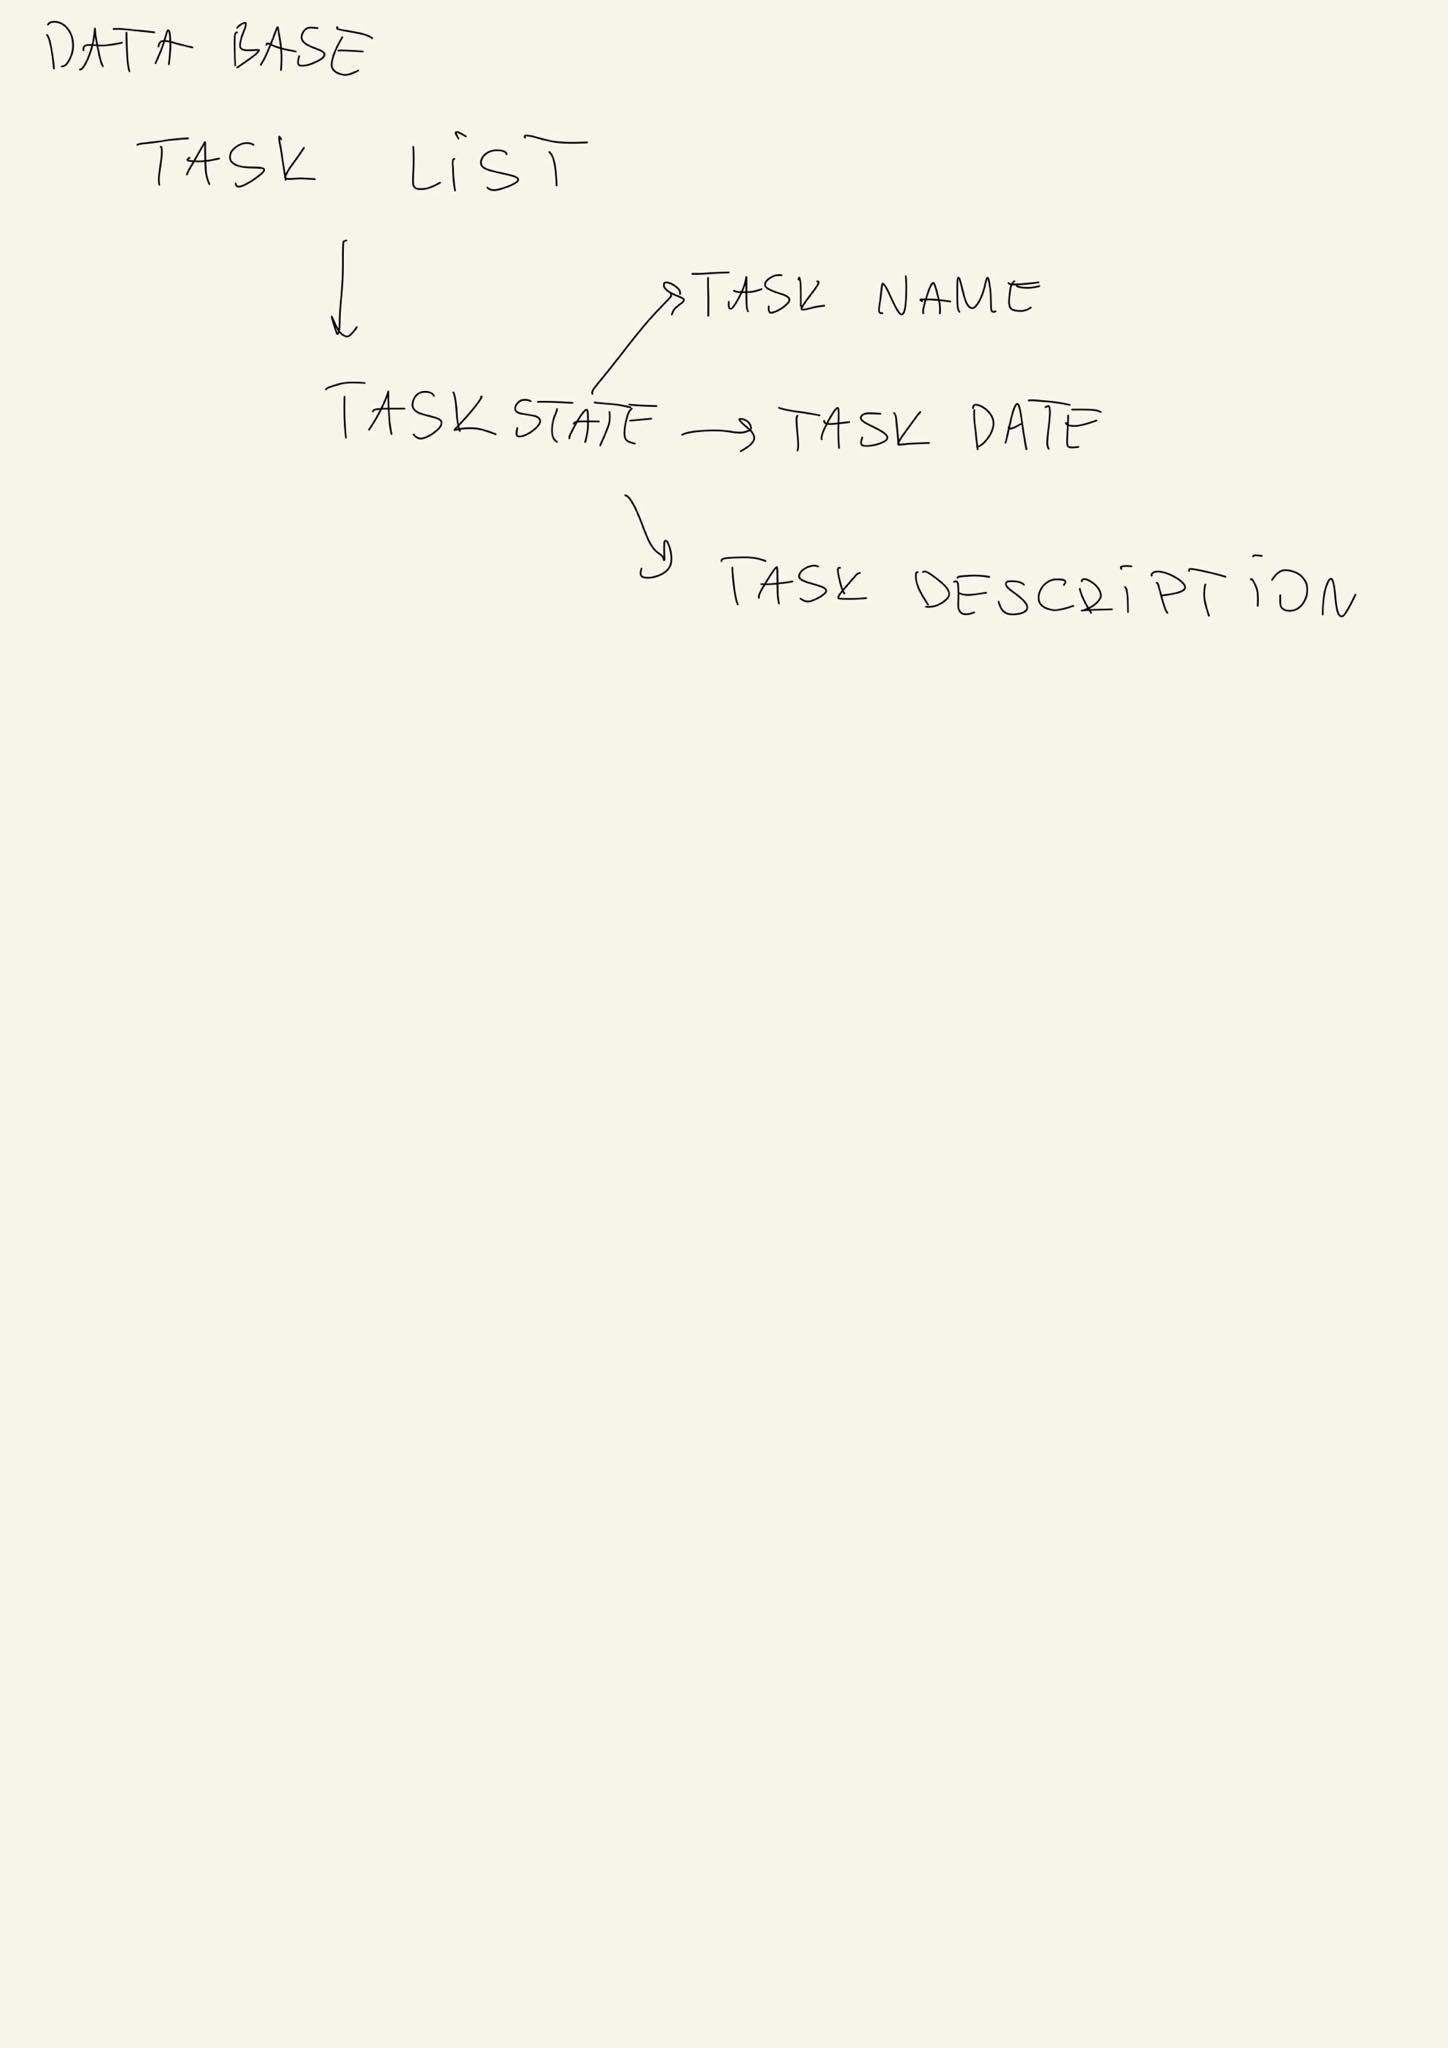 DATA BASE
TASK LiST
TASK NAME
TASK STATE → TASK DATE
TASK DESCRiPTiON